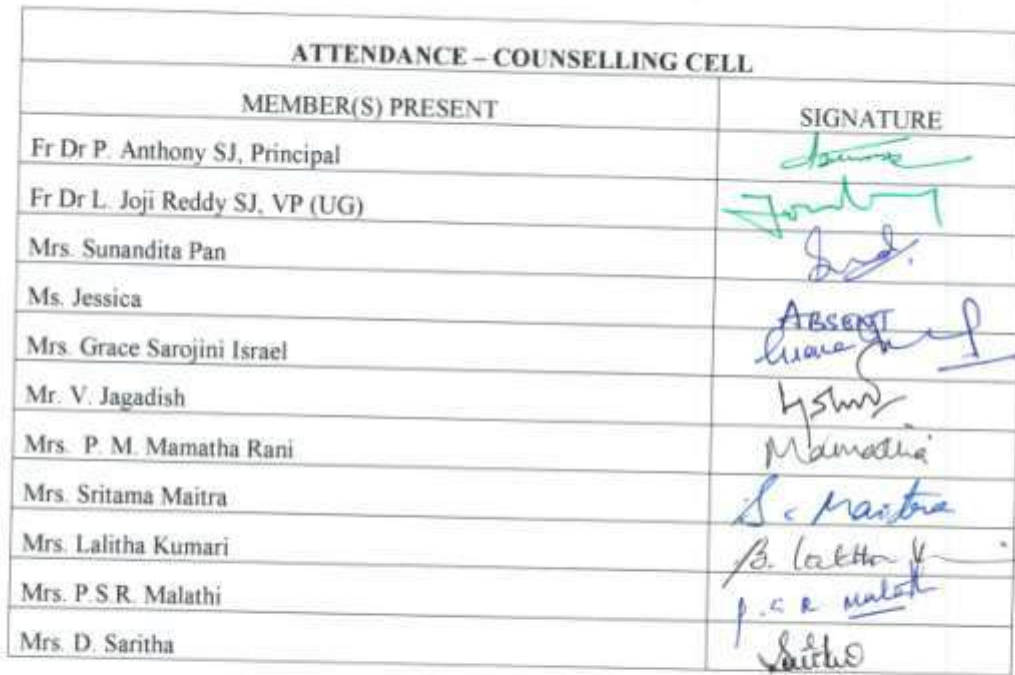 ATTENDANCE – COUNSELLING CELL
MEMBER(S) PRESENT SIGNATURE
Fr Dr P. Anthony SJ, Principal
Fr Dr L. Joji Reddy SJ, VP (UG)
Mrs. Sunandita Pan
Ms. Jessica ABSENT
Mrs. Grace Sarojini Israel
Mr. V. Jagadish
Mrs. P. M. Mamatha Rani Mamatha
Mrs. Sritama Maitra S. Maitra
Mrs. Lalitha Kumari B. Lalitha
Mrs. P.S.R. Malathi P. S R Malathi
Mrs. D. Saritha Saritha